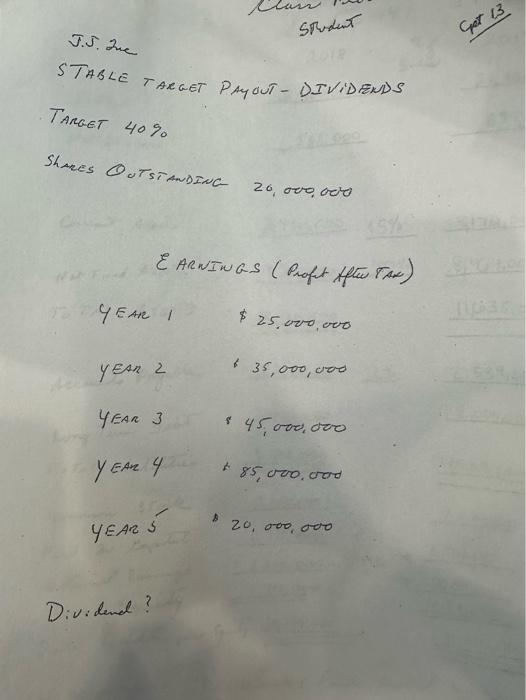 Class
Student
Cpt 13
J.J. Inc
STABLE TARGET PAYOUT - DIVIDENDS
TARGET 40%
SHARES OUTSTANDING 20,000,000
EARNINGS (Profit After Tax)
YEAR 1 $ 25,000,000
YEAR 2 $ 35,000,000
YEAR 3 $ 45,000,000
YEAR 4 $ 85,000,000
YEAR 5 $ 20,000,000
Dividend ?